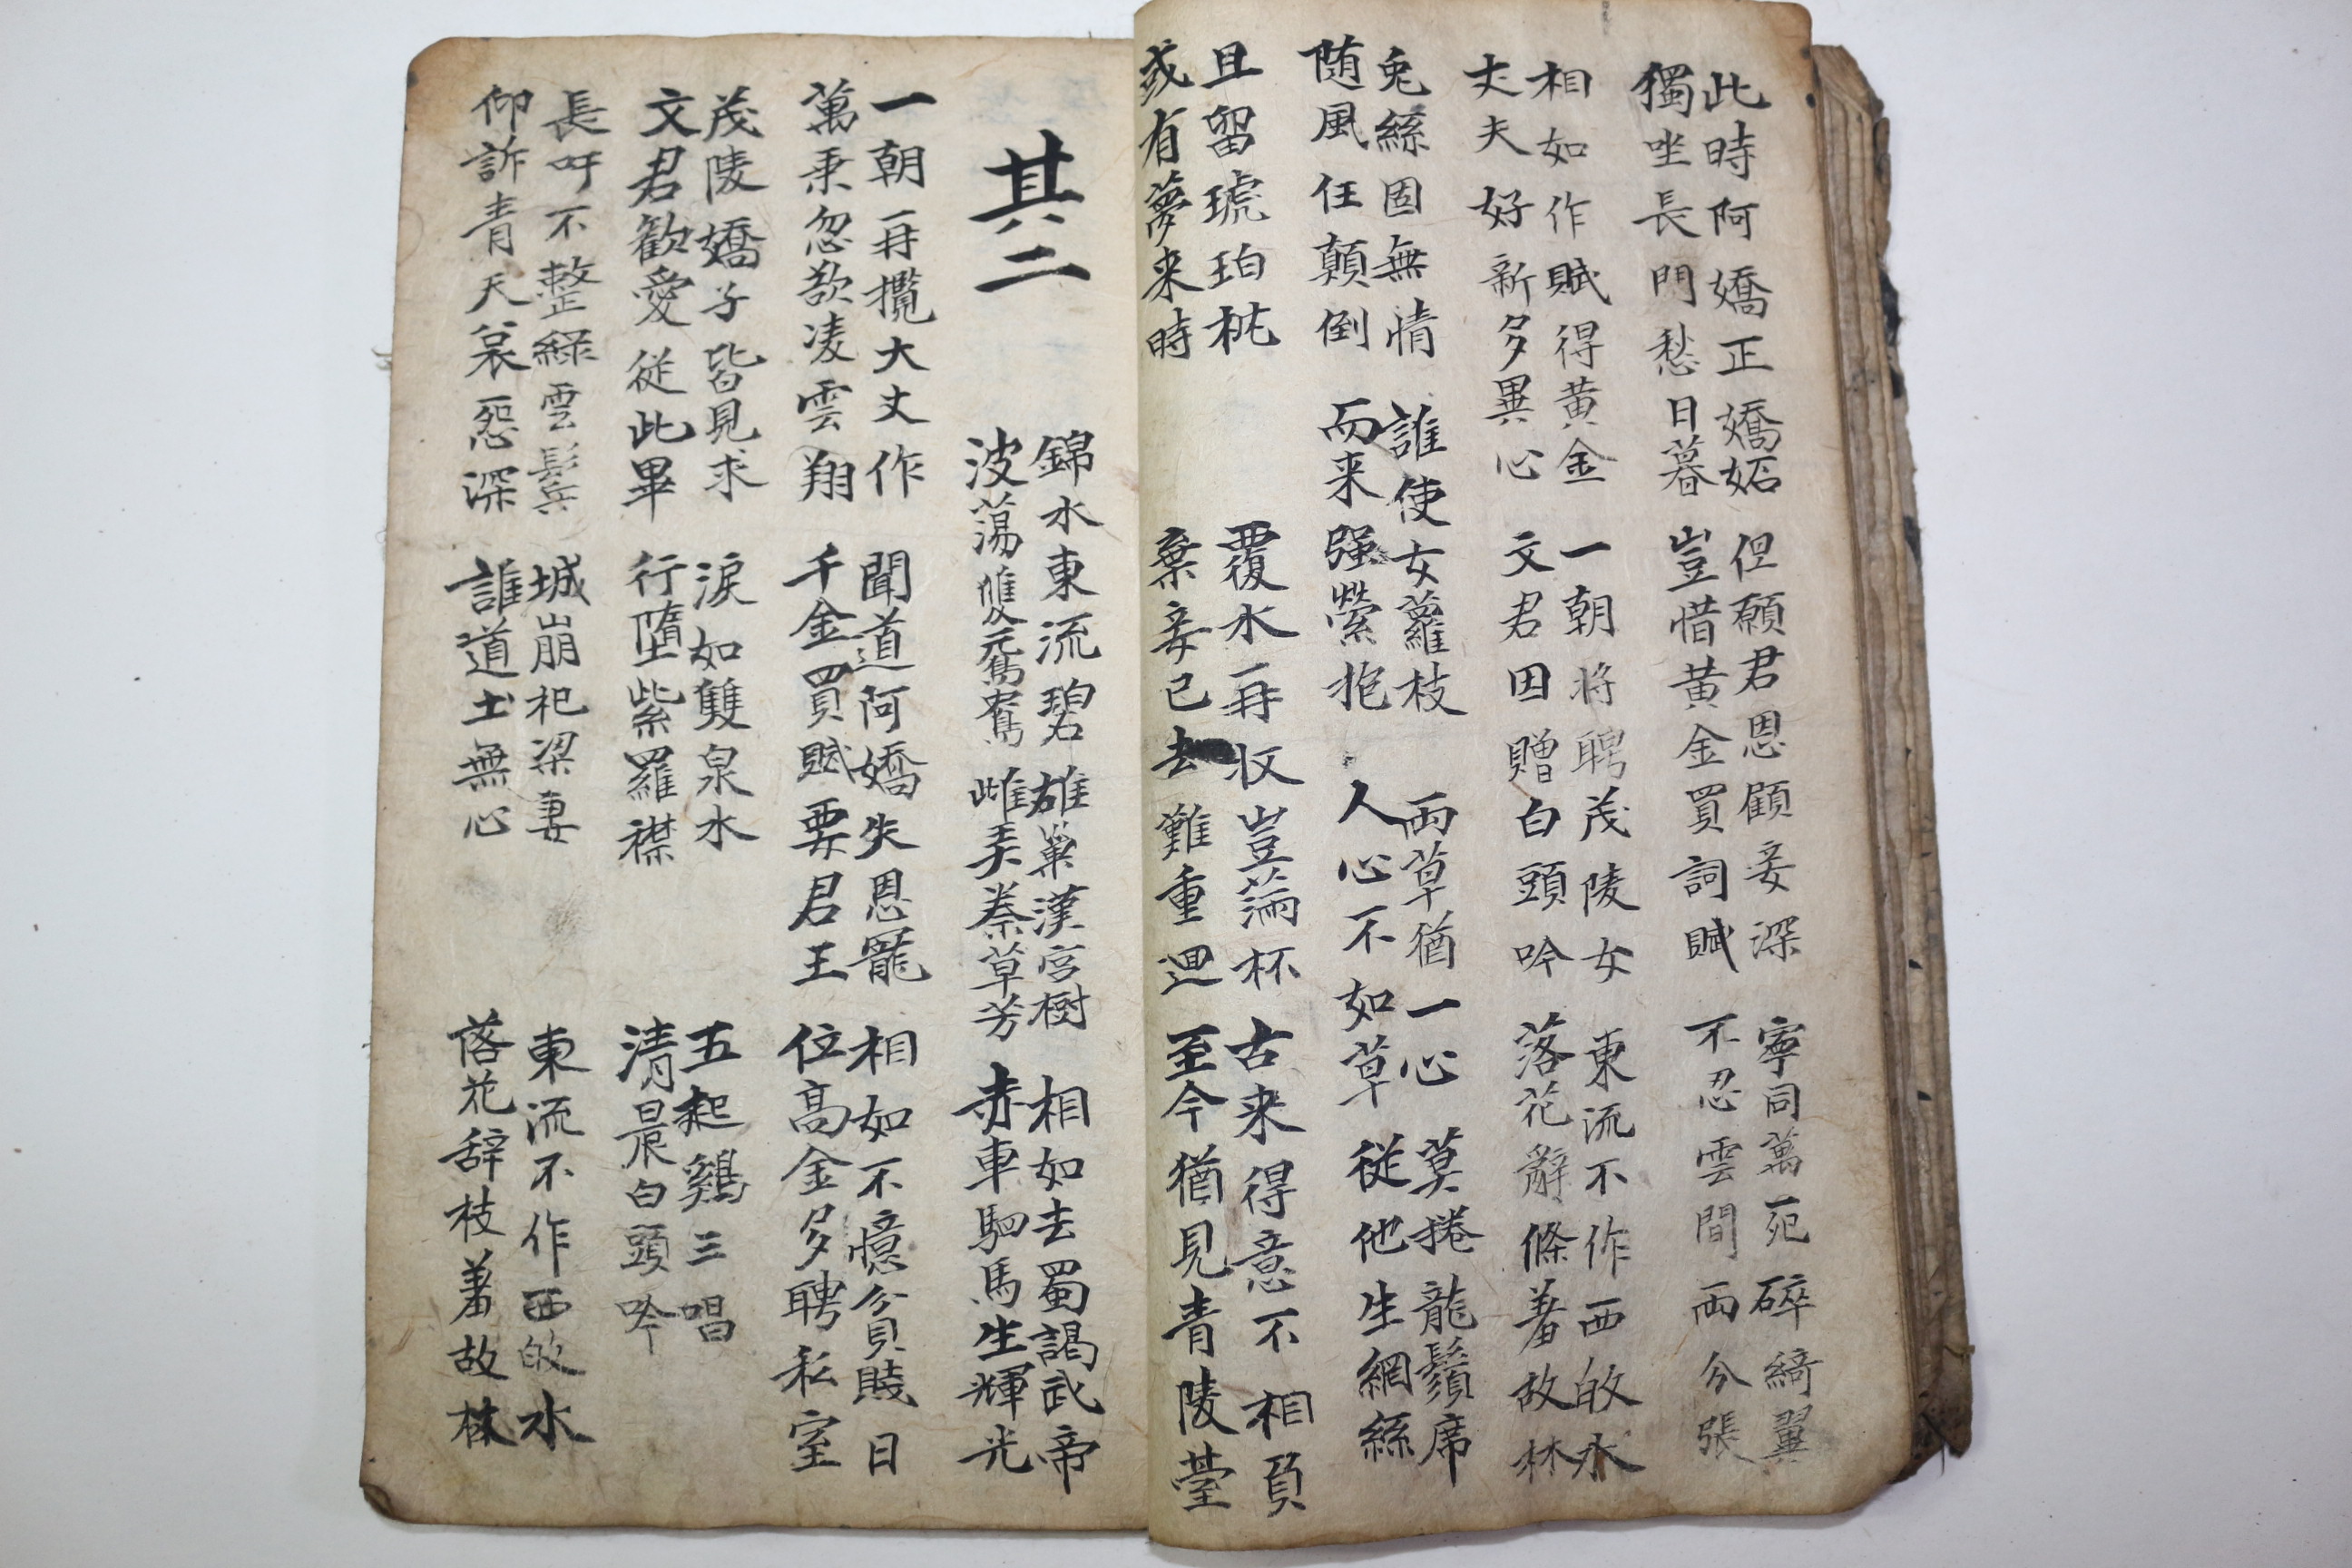 此時阿嬌正嬌妬
獨坐長門愁日暮
但願君恩顧妾深
豈惜黃金買詞賦
寧同萬死碎綺翼
不忍雲間兩分張
相如作賦得黃金
丈夫好新多異心
一朝將聘茂陵女
文君因贈白頭吟
東流不作西皈水
落花辭條羞故林
兎絲固無情
随風任顛倒
誰使女蘿枝
而来强縈抱
兩草猶一心
人心不如草
莫捲龍鬚席
從他生網絲
且留琥珀枕
或有夢来時
覆水再收豈滿杯
棄妾已去難重迴
古来得意不相負
至今猶見青陵臺
其二
錦水東流碧
波蕩雙鴛鴦
雄巢漢宮樹
雌弄秦草芳
相如去蜀謁武帝
赤車駟馬生輝光
一朝再攬大丈作
萬乘忽欲凌雲翔
聞道阿嬌失恩寵
千金買賦要君王
相如不憶貧賤日
位高金多聘私室
茂陵嬌子皆見求
文君歡愛從此畢
淚如雙泉水
行墮紫羅襟
五起鷄三唱
清晨白頭吟
長吁不整綠雲鬢
仰訴青天哀怨深
城崩杞梁妻
誰道土無心
東流不作西皈水
落花辞枝羞故林